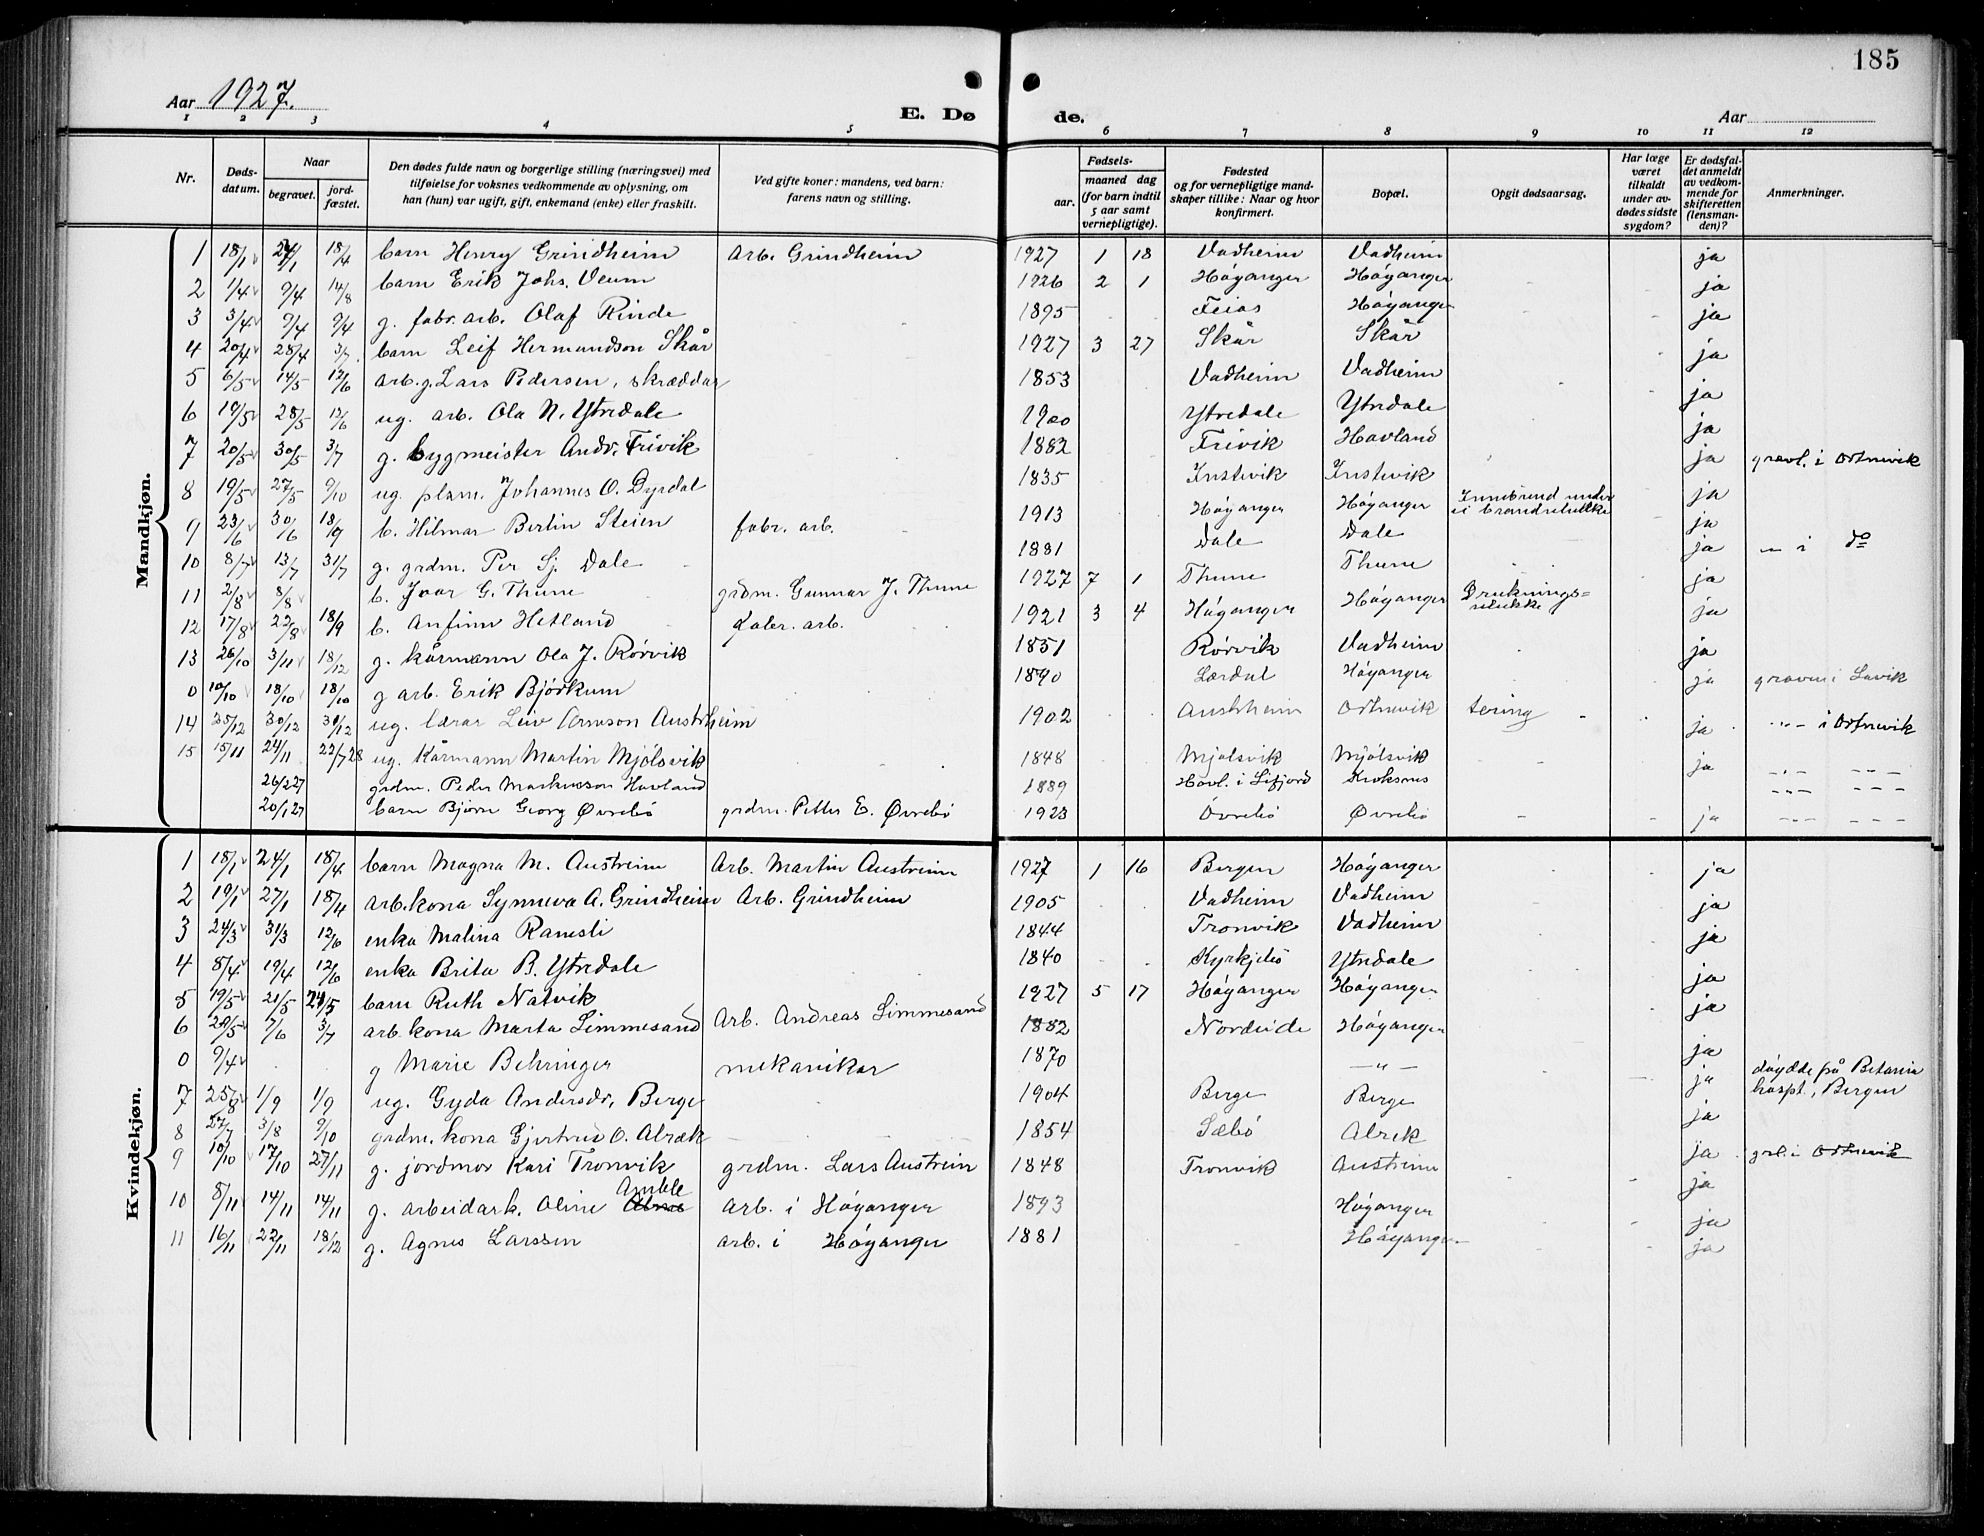 185
Aar 1927.
E. Døde.
Aar
1 2 3 4 5 6 7 8 9 10 11 12
Nr.
Dødsdatum.
Naar
begravet.
jordfæstet.
Den dødes fulde navn og borgerlige stilling (næringsvei) med tilføielse for voksnes vedkommende av oplysning, om han (hun) var ugift, gift, enkemand (enke) eller fraskilt.
Ved gifte koner: mandens, ved barn: farens navn og stilling.
Fødsels-
aar.
maaned dag (for barn indtil 5 aar samt vernepligtige).
Fødested og for vernepligtige mandskaper tillike: Naar og hvor konfirmert.
Bopæl.
Opgit dødsaarsag.
Har læge været tilkaldt under avdødes sidste sygdom?
Er dødsfaldet anmeldt av vedkommende for skifteretten (lensmanden)?
Anmerkninger.
Mandkjøn.
1 18/1 24/1 18/4 barn Henry Grindheim Arb. Grindheim 1927 1 18 Vadheim Vadheim ja
2 1/4 9/4 14/8 barn Erik Johs. Veum 1926 2 1 Høyanger Høyanger ja
3 3/4 9/4 9/4 g. fabr. arb. Olaf Rinde 1895 Feios Høyanger ja
4 20/4 28/4 3/7 barn Leif Hermundson Skår 1927 3 27 Skår Skår ja
5 6/5 14/5 12/6 arb. g. Lars Pedersen, skræddar 1853 Vadheim Vadheim ja
6 19/5 28/5 12/6 ug. arb. Ola N. Ytredale 1900 Ytredale Ytredale ja
7 20/5 30/5 3/7 g. bygmeister Andr. Frivik 1882 Frivik Havland ja
8 19/5 27/5 9/10 ug. plsm. Johannes O. Dyrdal 1835 Instevik Instevik ja gravl. i Ortnevik
9 23/6 30/6 18/9 b. Hilmar Berlin Steien fabr. arb. 1913 Høyanger Høyanger Innebrend under ei brandulukke ja
10 8/7 13/7 31/7 g. grdm. Per Sj. Dale 1881 Dale Dale ja — " — i do
11 2/8 8/8 b. Ivar G. Thune grdm. Gunnar J. Thune 1927 7 1 Thune Thune ja
12 17/8 22/8 18/9 b. Anfinn Hetland Fabr. arb. 1921 3 4 Høyanger Høyanger Druknings=ulukke ja
13 26/10 3/11 18/12 g. kårmann Ola J. Rørvik 1851 Rørvik Vadheim ja
0 10/10 18/10 18/10 g arb. Erik Bjørkum 1890 Lærdal Høyanger ja graven i Lavik
14 25/12 30/12 30/12 ug. lærar Leiv Arneson Austrheim 1902 Austrheim Ortnevik tering ja — " — i Ortnevik
15 15/11 24/11 22/7 28 ug. Kårmann Martin Mjølsvik 1848 Mjølsvik Mjølsvik ja — " — — " —
26/2 27 grdm. Peder Markusson Havland 1889 Havl. i Lifjord Kroksnes — " — — " —
20/1 27 barn Bjørn Georg Øvrebø grdm. Petter E. Øvrebø 1923 Øvrebø Øvrebø ja — " — — " —
Kvindekjøn.
1 18/1 24/1 18/4 barn Magna M. Austreim Arb. Martin Austreim 1927 1 16 Bergen Høyanger ja
2 19/1 27/1 18/4 arb.kona Synneva A. Grindheim Arb. Grindheim 1905 Vadheim Vadheim ja
3 24/3 31/3 12/6 enka Malina Ramsli 1844 Tronvik Vadheim ja
4 8/4 19/4 12/6 enka Brita B. Ytredale 1840 Kyrkjebø Ytredale ja
5 19/5 21/5 21/5 barn Ruth Natvik 1927 5 17 Høyanger Høyanger ja
6 29/5 7/6 3/7 arb. kona Marta Simmesand Arb. Andreas Simmesand 1882 Nordeide Høyanger ja
0 9/4 g Marie Behringer mekanikar 1870 — " — ja døydde på Betania hospt., Bergen
7 25/8 1/9 1/9 ug. Gyda Andersdr. Berge 1904 Berge Berge ja
8 27/7 3/8 9/10 grdm. kona Gjertrud O. Alræk 1854 Sæbø Alrek ja
9 10/10 17/10 27/11 g. jordmor Kari Tronvik grdm. Lars Austreim 1848 Tronvik Austreim ja grl. i Ortnevik
10 8/11 14/11 14/11 g. arbeidark. Oline Amble Arb. i Høyanger 1893 Høyanger ja
11 16/11 22/11 18/12 g. Agnes Larssen arb. i Høyanger 1881 Høyanger ja